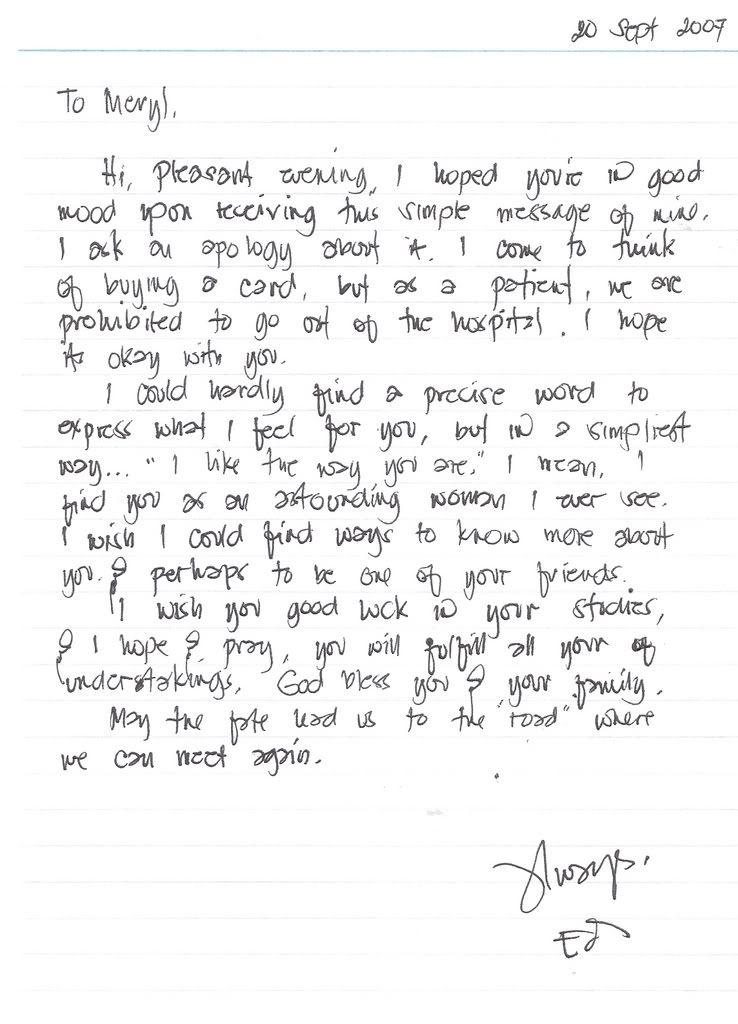 20 Sept 2007
To Meryl,
Hi, Pleasant evening, I hoped you're in good
mood upon receiving this simple message of mine.
I ask an apology about it. I come to think
of buying a card, but as a patient, we are
prohibited to go out of the hospital. I hope
it's okay with you.
I could hardly find a precise word to
express what I feel for you, but in a simpliest
way... "I like the way you are." I mean, I
find you as an astounding woman I ever see.
I wish I could find ways to know more about
you. & perhaps to be one of your friends.
I wish you good luck in your studies,
& I hope & pray, you will fulfill all your of
understakings. God bless you & your family.
May the fate lead us to the "road" where
we can meet again.
Always.
EJ